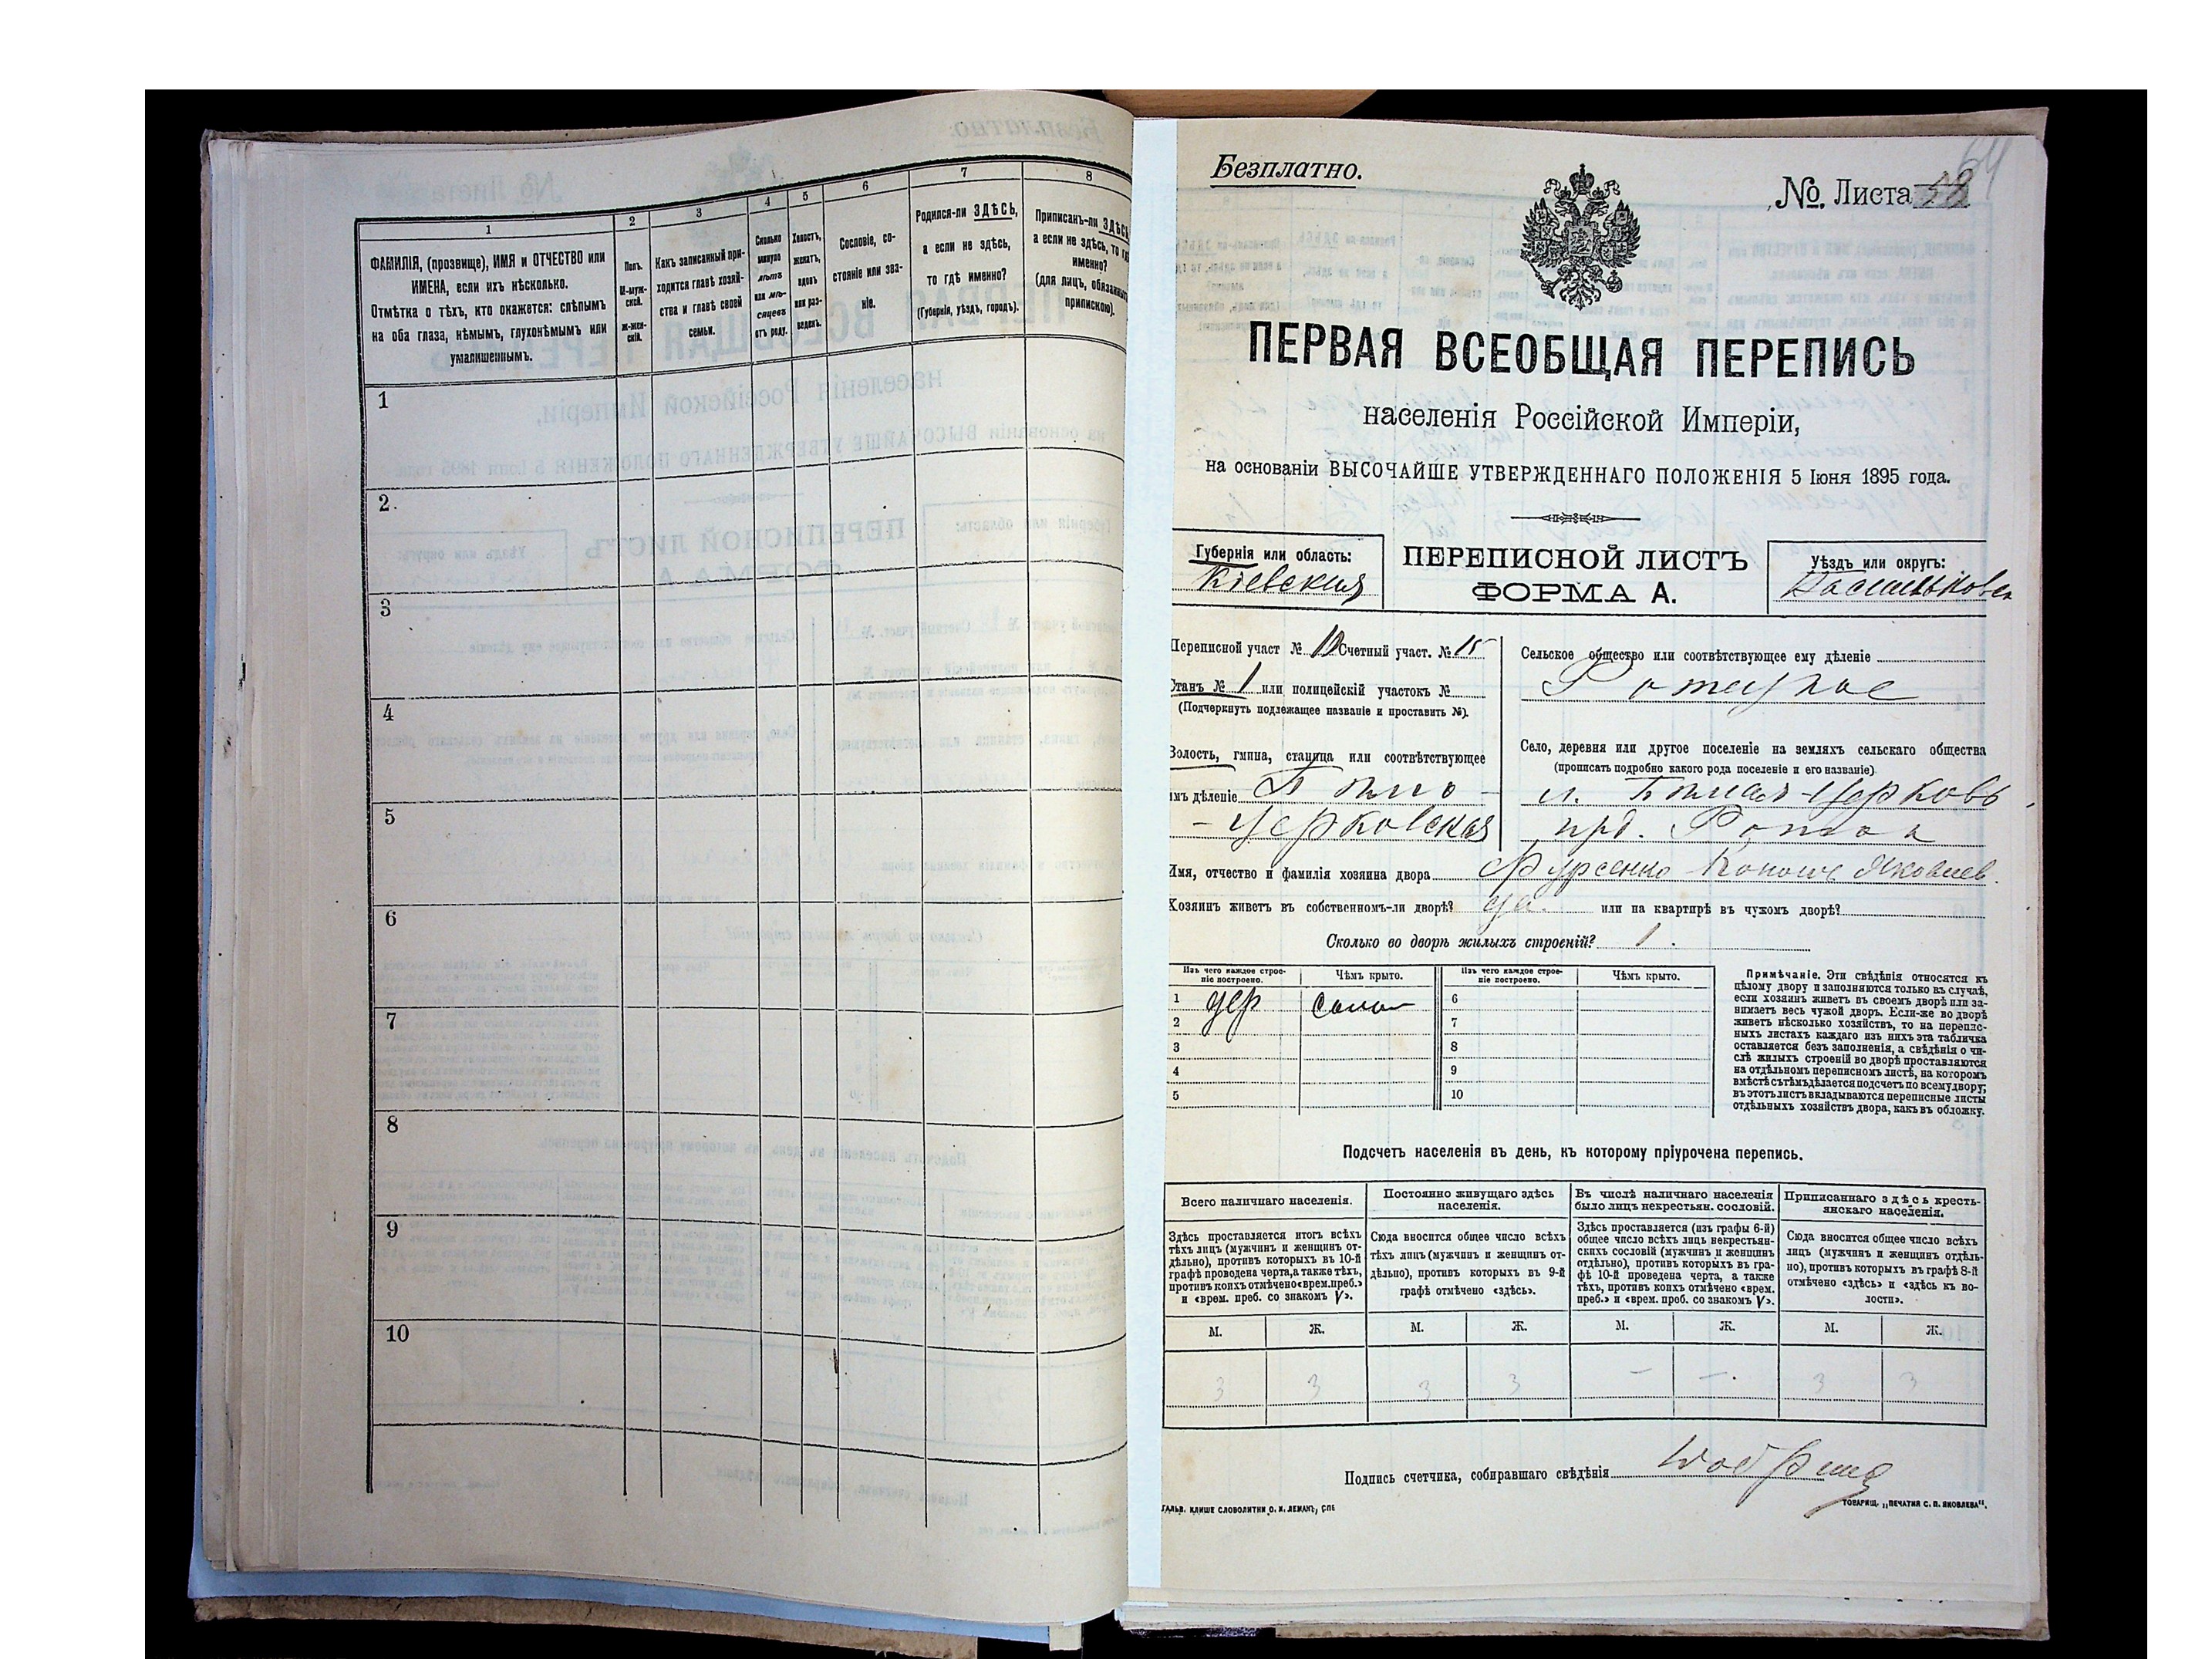 1
2
3
4
5
6
7
8
ФАМИЛІЯ, (прозвище), ИМЯ и ОТЧЕСТВО или
ИМЕНА, если ихъ нѣсколько.
Отмѣтка о тѣхъ, кто окажется: слѣпымъ
на оба глаза, нѣмымъ, глухонѣмымъ или
умалишеннымъ.
Полъ.
М-муж-
ской.
ж-жен-
скій.
Какъ записанный при-
ходится главѣ хозяй-
ства и главѣ своей
семьи.
Сколько
минуло
лѣтъ
или мѣ-
сяцевъ
отъ роду.
Холостъ,
женатъ,
вдовъ
или раз-
веденъ.
Сословіе, со-
стояніе или зва-
ніе.
Родился-ли ЗДѢСЬ,
а если не здѣсь,
то гдѣ именно?
(Губернія, уѣздъ, городъ).
Приписанъ-ли ЗДѢСЬ,
а если не здѣсь, то гдѣ
именно?
(для лицъ, обязанныхъ
припискою).
1
2.
3
4
5
6
7
8
9
10
Безплатно.
№. Листа 58
64
ПЕРВАЯ ВСЕОБЩАЯ ПЕРЕПИСЬ
населенія Россійской Имперіи,
на основаніи ВЫСОЧАЙШЕ УТВЕРЖДЕННАГО ПОЛОЖЕНІЯ 5 Іюня 1895 года.
Губернія или область:
Кіевская
ПЕРЕПИСНОЙ ЛИСТЪ
ФОРМА А.
Уѣздъ или округъ:
Васильковск
Переписной участ № 10 Счетный участ. № 15
Станъ № 1 или полицейскій участокъ №
(Подчеркнуть подлежащее названіе и проставить №).
Волость, гмина, станица или соотвѣтствующее
имъ дѣленіе Бѣло-
-Церковская
Сельское общество или соотвѣтствующее ему дѣленіе
Село, деревня или другое поселеніе на земляхъ сельскаго общества
(прописать подробно какого рода поселеніе и его названіе)
м. Бѣлая-Церковь
прд.
Имя, отчество и фамилія хозяина двора Фурсенко Кононъ Яковлев.
Хозяинъ живетъ въ собственномъ-ли дворѣ? да. или на квартирѣ въ чужомъ дворѣ?
Сколько во дворѣ жилыхъ строеній? 1.
Изъ чего каждое строе-
ніе построено.
Чѣмъ крыто.
Изъ чего каждое строе-
ніе построено.
Чѣмъ крыто.
1 дер солом
2
3
4
5
6
7
8
9
10
Примѣчаніе. Эти свѣдѣнія относятся къ
цѣлому двору и заполняются только въ случаѣ,
если хозяинъ живетъ въ своемъ дворѣ или за-
нимаетъ весь чужой дворъ. Если-же во дворѣ
живетъ нѣсколько хозяйствъ, то на перепис-
ныхъ листахъ каждаго изъ нихъ эта табличка
оставляется безъ заполненія, а свѣдѣнія о чи-
слѣ жилыхъ строеній во дворѣ проставляются
на отдѣльномъ переписномъ листѣ, на которомъ
вмѣстѣ съ тѣмъ дѣлается подсчетъ по всему двору;
въ этотъ листъ вкладываются переписные листы
отдѣльныхъ хозяйствъ двора, какъ въ обложку.
Подсчетъ населенія въ день, къ которому пріурочена перепись.
Всего наличнаго населенія.
Здѣсь проставляется итогъ всѣхъ
тѣхъ лицъ (мужчинъ и женщинъ от-
дѣльно), противъ которыхъ въ 10-й
графѣ проведена черта, а также тѣхъ,
противъ коихъ отмѣчено «врем. преб.»
и «врем. преб. со знакомъ V».
Постоянно живущаго здѣсь
населенія.
Сюда вносится общее число всѣхъ
тѣхъ лицъ (мужчинъ и женщинъ от-
дѣльно), противъ которыхъ въ 9-й
графѣ отмѣчено «здѣсь».
Въ числѣ наличнаго населенія
было лицъ некрестьян. сословій.
Здѣсь проставляется (изъ графы 6-й)
общее число всѣхъ лицъ некрестьян-
скихъ сословій (мужчинъ и женщинъ
отдѣльно), противъ которыхъ въ гра-
фѣ 10-й проведена черта, а также
тѣхъ, противъ коихъ отмѣчено «врем.
преб.» и «врем. проб. со знакомъ V».
Приписаннаго здѣсь кресть-
янскаго населенія.
Сюда вносится общее число всѣхъ
лицъ (мужчинъ и женщинъ отдѣль-
но), противъ которыхъ въ графѣ 8-й
отмѣчено «здѣсь» и «здѣсь къ во-
лости».
М. Ж. М. Ж. М. Ж. М. Ж.
3 3 3 3 — — 3 3
Подпись счетчика, собиравшаго свѣдѣнія
ГАЛЬВ. КЛИШЕ СЛОВОЛИТНИ О. И. ЛЕМАНЪ, СПБ
ТОВАРИЩ. „ПЕЧАТНЯ С. П. ЯКОВЛЕВА".